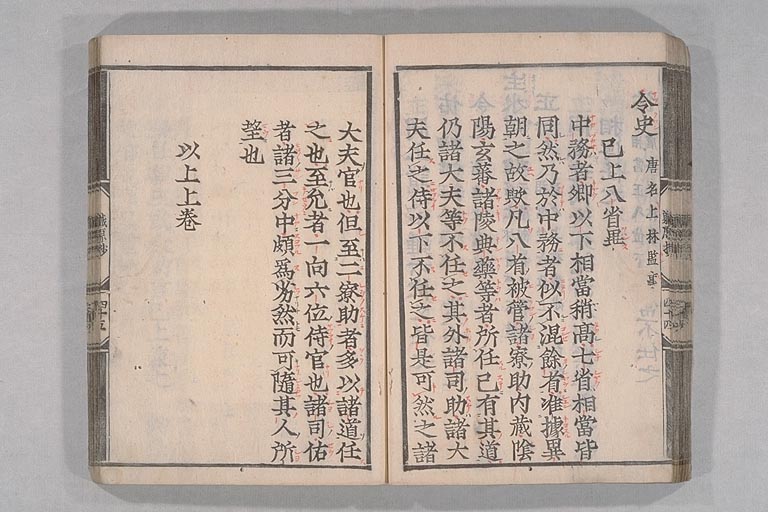 令史 唐名上林監事
已上八省畢
中務者卿以下相當稍高七省相當皆
同然乃於中務者似不混餘省准據異
朝之故歟凡八省被管諸寮助内藏陰
陽玄蕃諸陵典藥等者所任已有其道
仍諸大夫等不任之其外諸司助諸大
夫任之侍以下不任之皆是可然之諸
大夫官也但至二寮助者多以諸道任
之也至允者一向六位侍官也諸司佑
者諸三分中頗爲劣然而可隨其人所
望也
以上上卷
職原抄
四十五